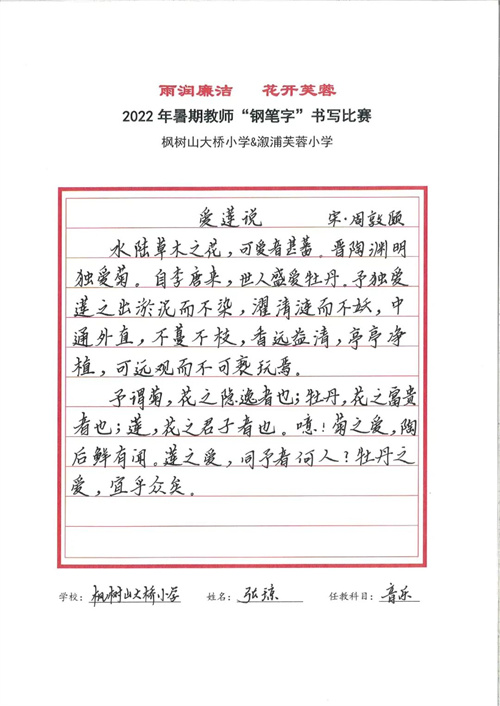 雨润廉洁 花开芙蓉
2022年暑期教师“钢笔字”书写比赛
枫树山大桥小学&溆浦芙蓉小学
爱莲说 宋·周敦颐
水陆草木之花，可爱者甚蕃。晋陶渊明
独爱菊。自李唐来，世人盛爱牡丹。予独爱
莲之出淤泥而不染，濯清涟而不妖，中
通外直，不蔓不枝，香远益清，亭亭净
植，可远观而不可亵玩焉。
予谓菊，花之隐逸者也；牡丹，花之富贵
者也；莲，花之君子者也。噫！菊之爱，陶
后鲜有闻。莲之爱，同予者何人？牡丹之
爱，宜乎众矣。
学校：枫树山大桥小学 姓名：张琼 任教科目：音乐